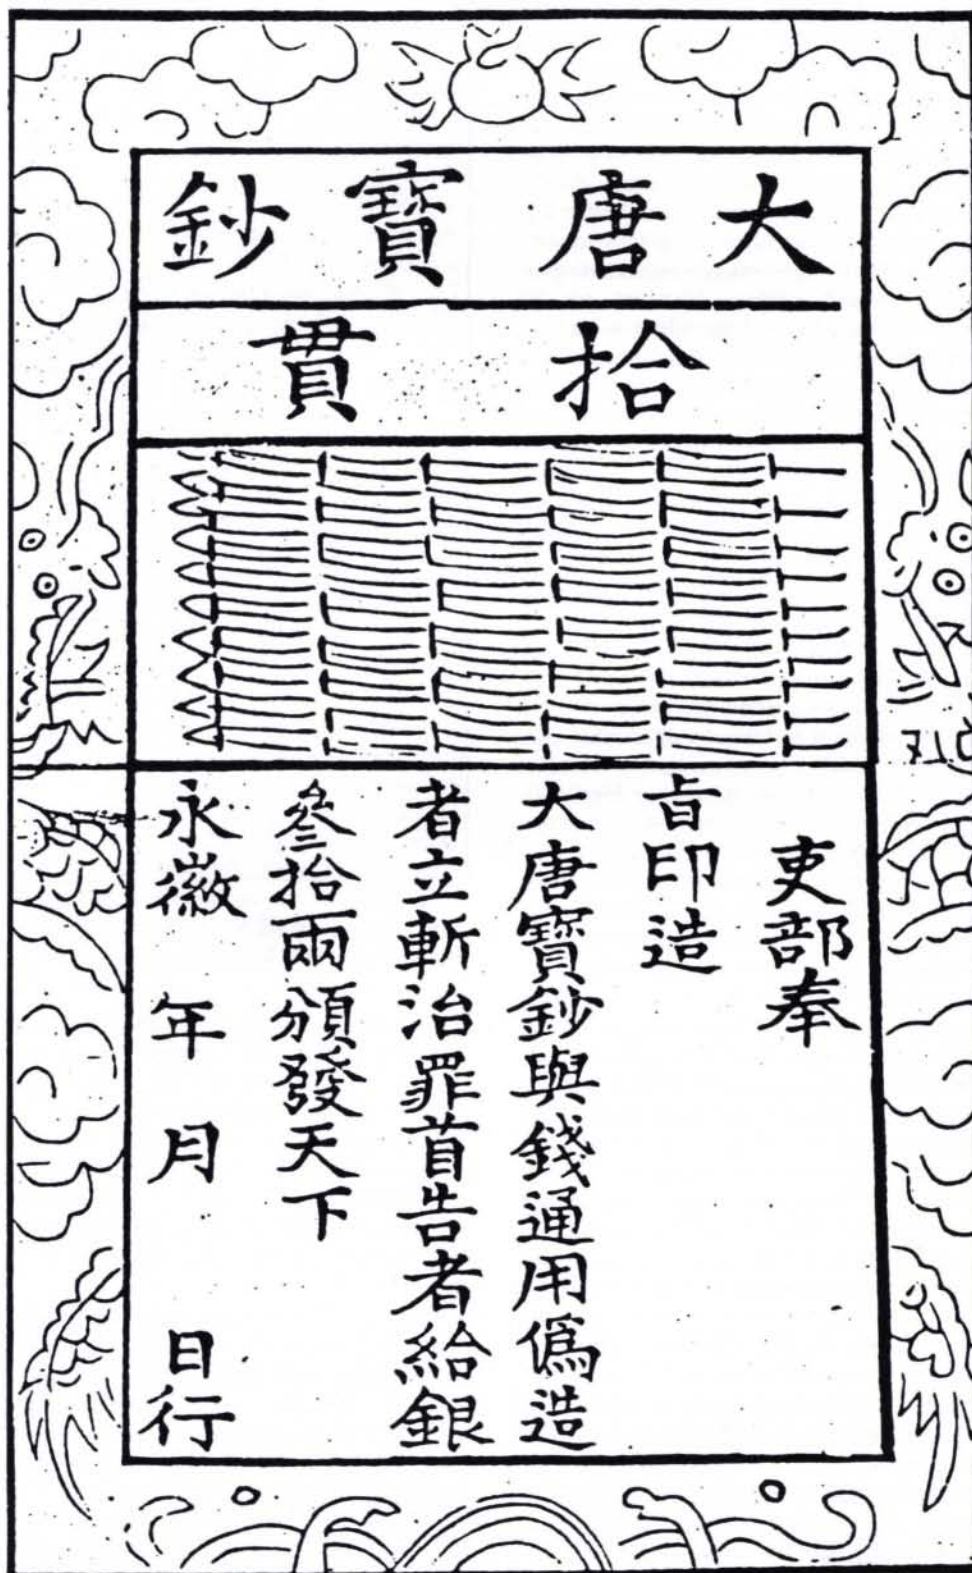 大唐寶鈔
拾貫
吏部奉
旨印造
大唐寶鈔與錢通用偽造
者立斬治罪首告者給銀
叄拾兩頒發天下
永徽 年 月 日行